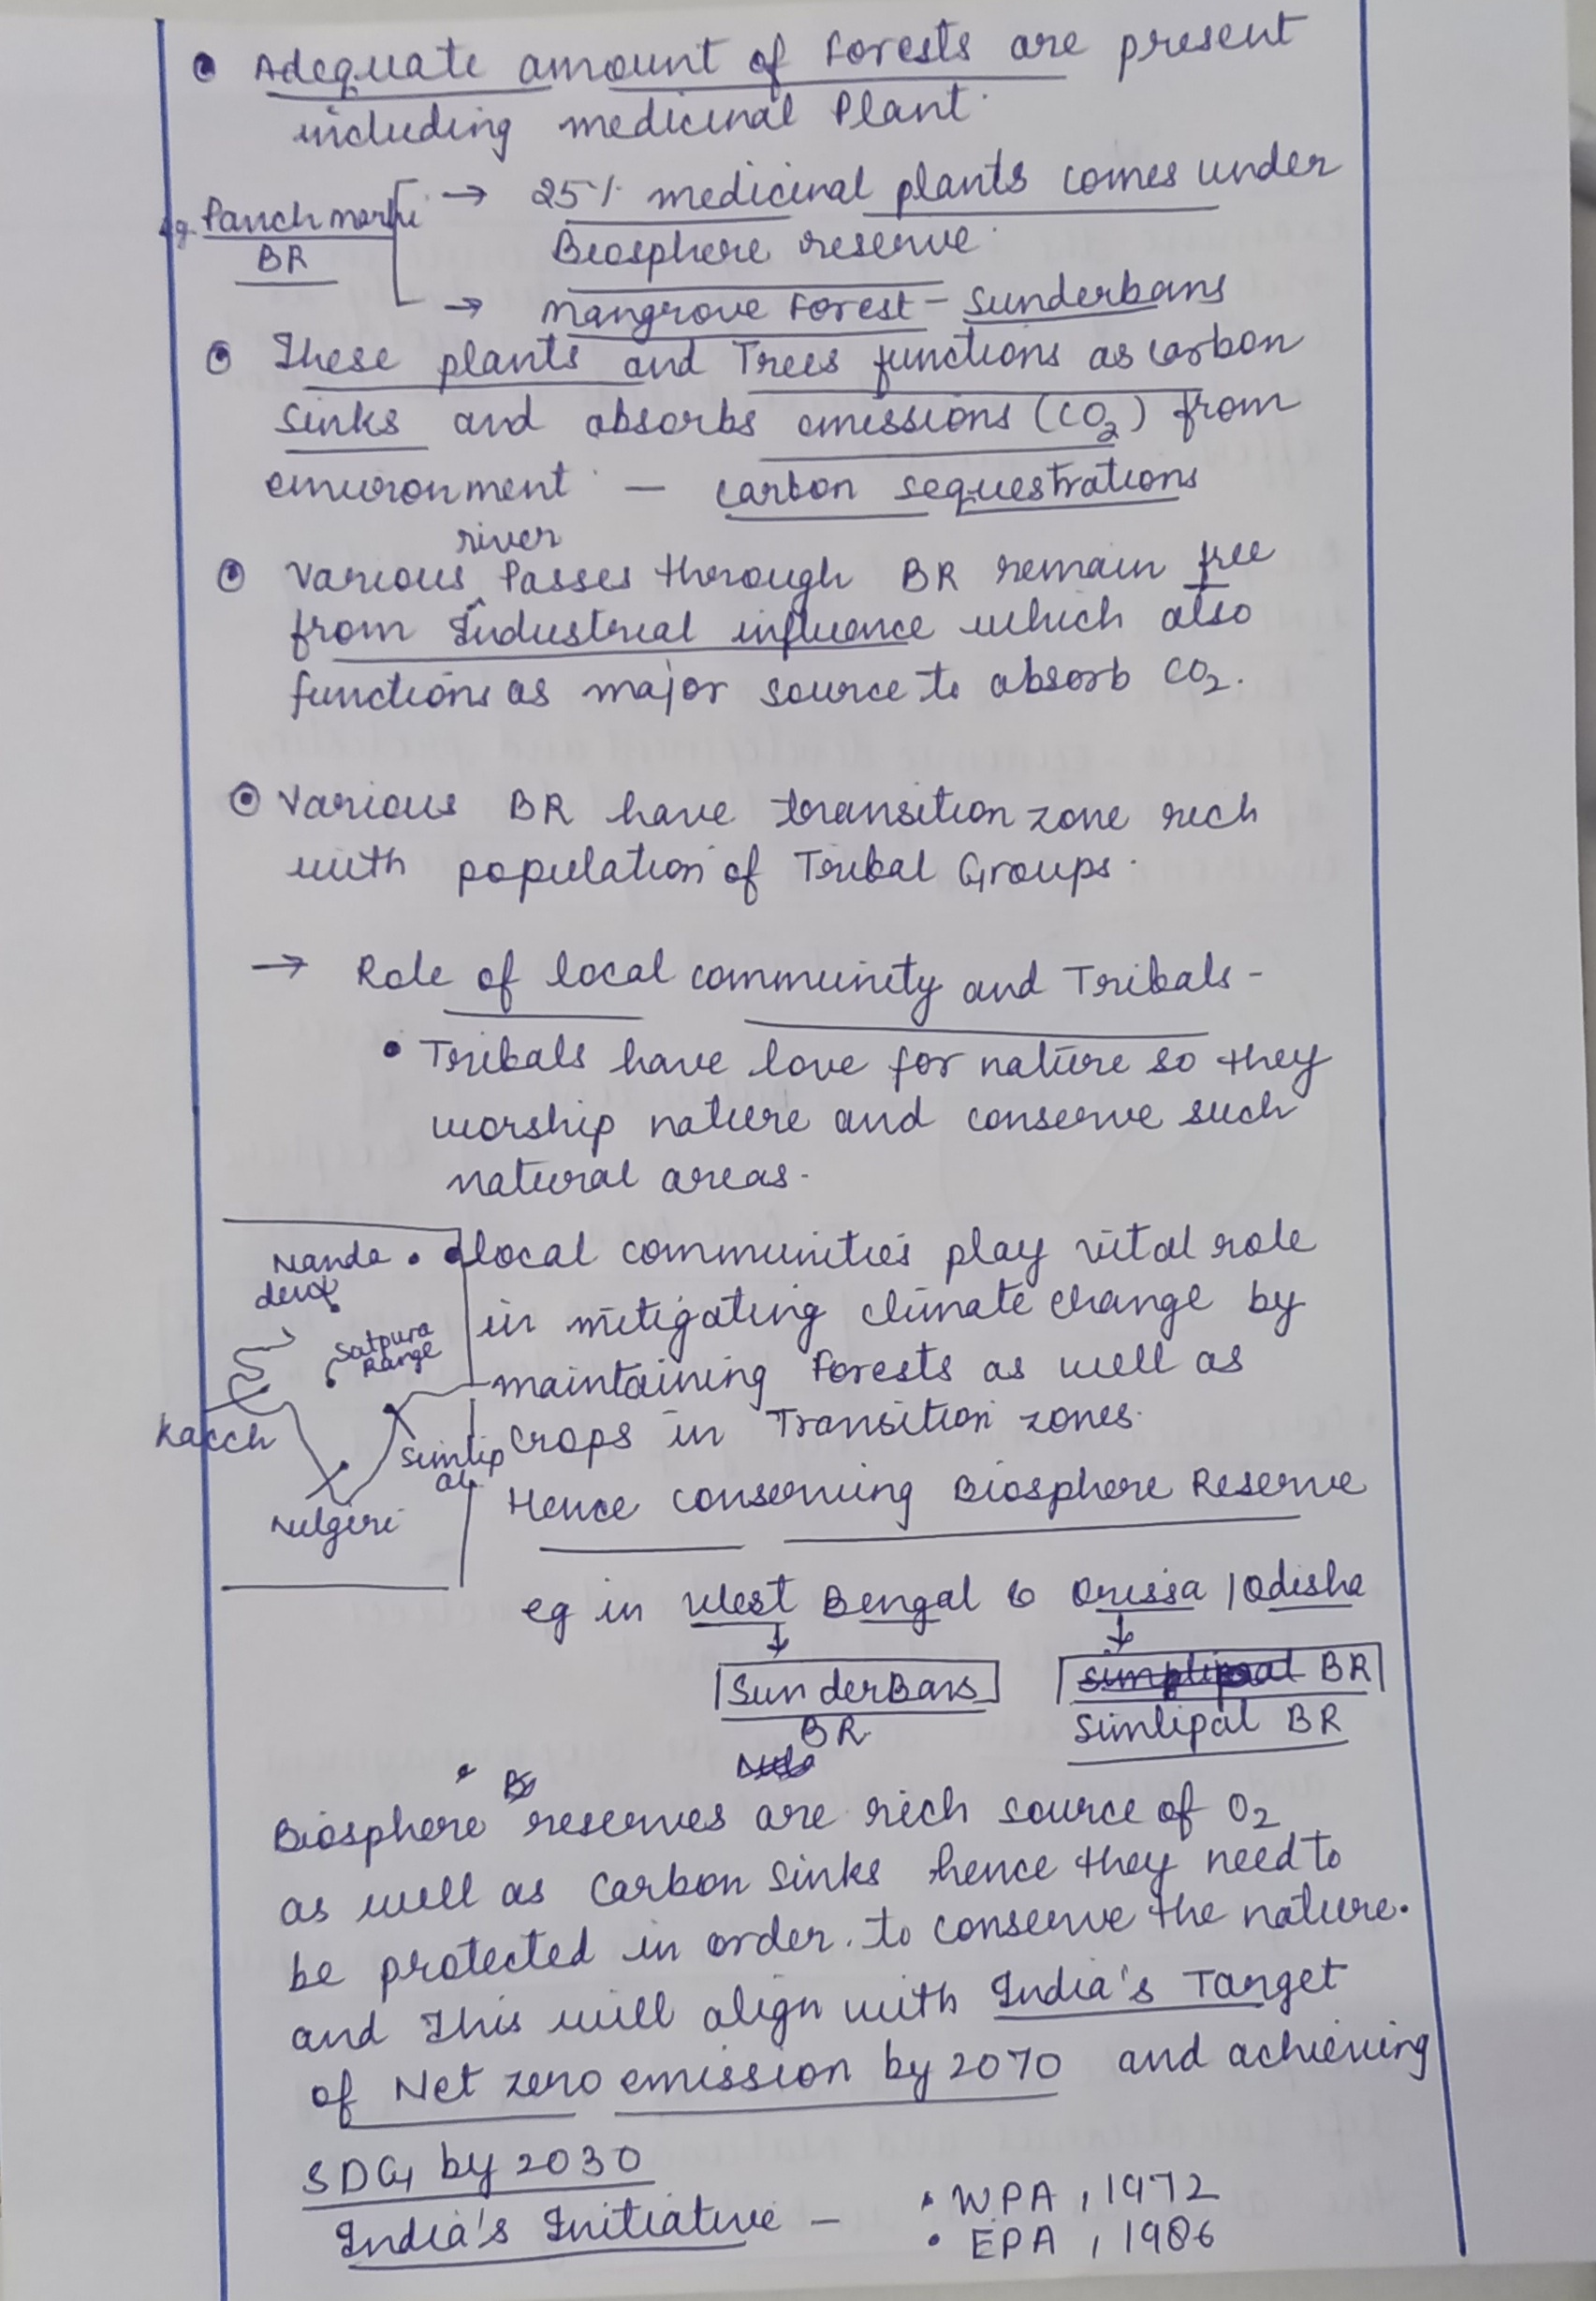 • Adequate amount of Forests are present
including medicinal Plant.
eg. Panchmarhi BR
→ 25% medicinal plants comes under
Biosphere reserve.
→ Mangrove Forest - Sunderbans
• These plants and Trees functions as carbon
sinks and absorbs emissions (CO2) from
environment - carbon sequestrations
river
• Various ^ Passes through BR remain free
from Industrial influence which also
functions as major source to absorb CO2.
• Various BR have transition zone rich
with population of Tribal Groups.
→ Role of local community and Tribals -
• Tribals have love for nature so they
worship nature and conserve such
natural areas.
• local communities play vital role
in mitigating climate change by
maintaining Forests as well as
crops in Transition zones.
Hence conserving Biosphere Reserve
Nanda
devi
Satpura
Range
Kacch
Simlip
al
Nilgiri
eg in West Bengal & Orissa / Odisha
↓ ↓
SunderBans BR
BR Simlipal BR
Biosphere reserves are rich source of O2
as well as Carbon Sinks hence they need to
be protected in order. to conserve the nature.
and This will align with India's Target
of Net zero emission by 2070 and achieving
SDG by 2030
India's Initiative - • WPA, 1972
• EPA, 1986